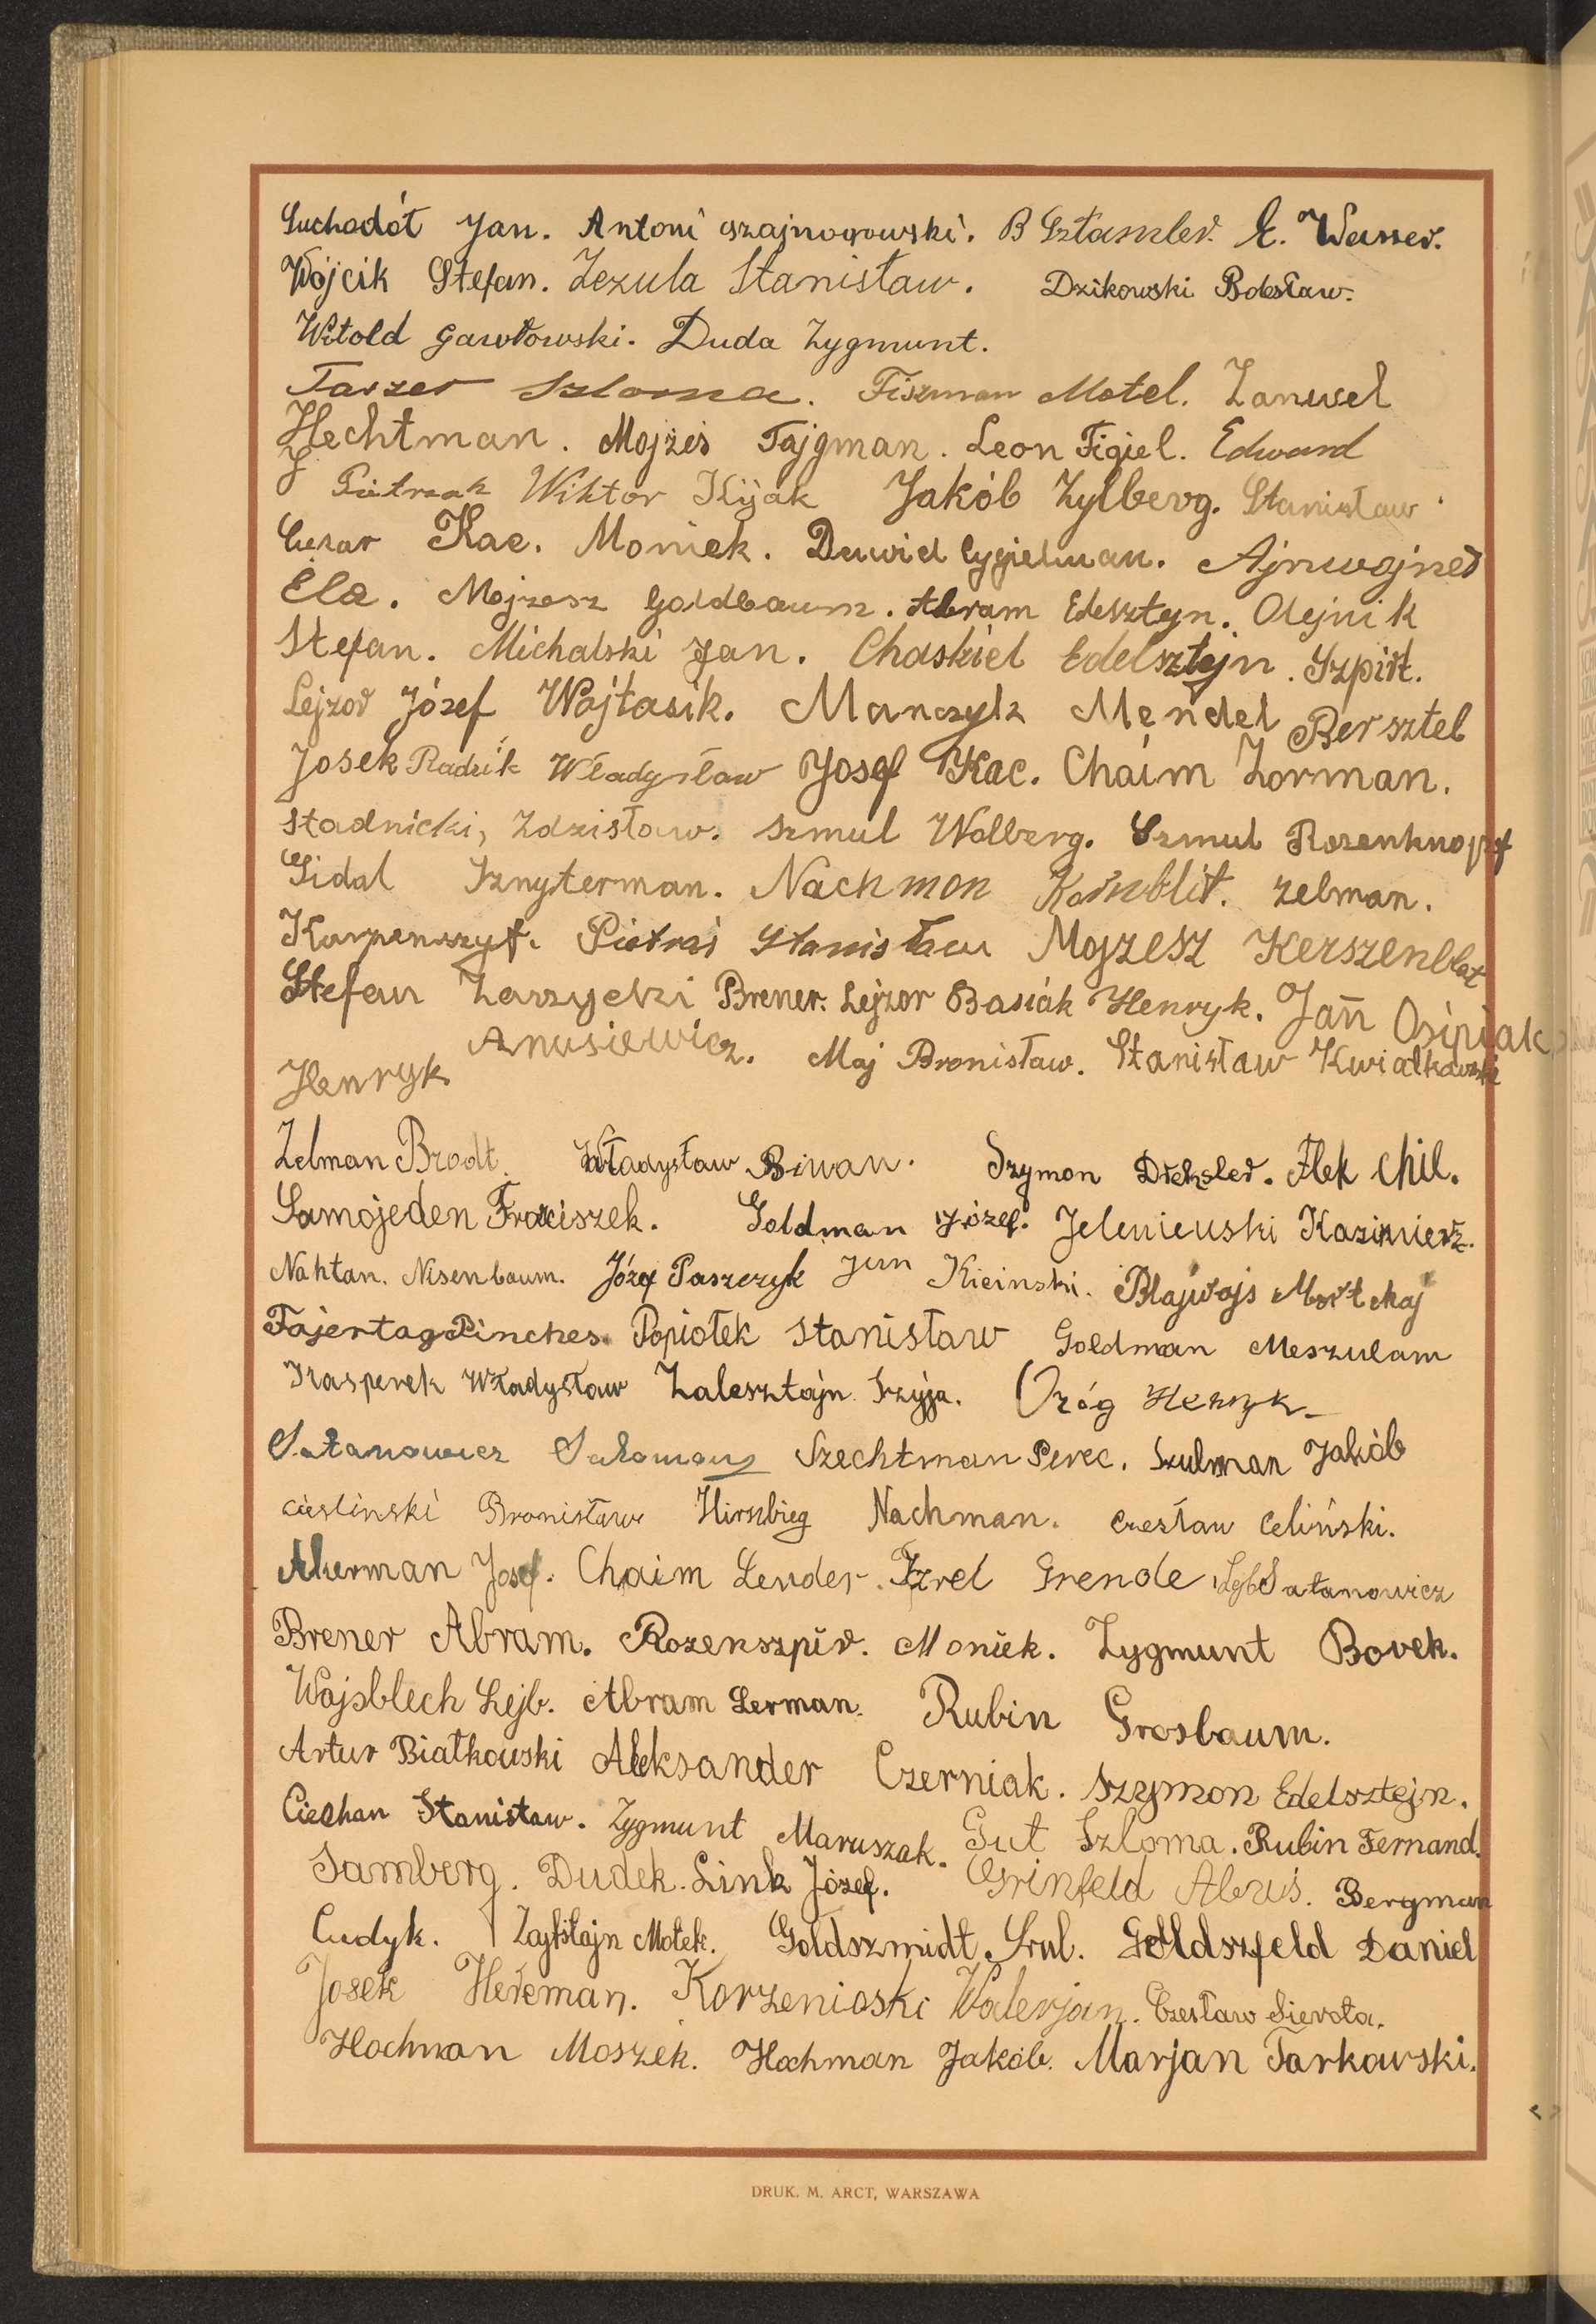 Suchodół Jan. Antoni Szajnogowski. B Sztamler. E. Wasser.
Wójcik Stefan. Zezula Stanisław. Dzikowski Bolesław.
Witold Gawłowski. Duda Zygmunt.
Tarzer Szloma. Fiszman Motel. Zanwel
Hechtman. Mojżes Fajgman. Leon Figiel. Edward
J. Pietrzak Wiktor Kijak Jakób Zylberg. Stanisław
Cezar Kac. Moniek. Dawid Cygielman. Ajnwojner
Ela. Mojzesz Goldbaum. Abram Edesztejn. Olejnik
Stefan. Michalski Jan. Chaskiel Edelsztejn. Szpirt.
Lejzor Józef Wojtasik. Manczyk Mendel Bersztel
Josek Radzik Władysław Josef Kac. Chaim Zorman.
Stadnicki, Zdzisław. Szmul Wolberg. Szmul Rozenknopf
Gidal Sznyterman. Nachmon Kornblit. Zelman.
Karpenszyf. Pietraś Stanisław Mojzesz Kerszenblat
Stefan Zarzycki Brener. Lejzor Basiak Henryk. Jan Osipiak
Henryk Anusiewicz. Maj Bronisław. Stanisław Kwiatkowski
Zelman Brodt. Władysław Biwan. Szymon Dreksler. Flek Chil.
Samojeden Franciszek. Goldman Józef. Jeleniewski Kazimierz.
Nahtan. Nisenbaum. Józef Paszczyk Jan Kicinski. Blajwajs Mortchaj
Fajertag Pinches. Popiołek Stanisław Goldman Meszulam
Kasperek Władysław Zalesztajn Szyja. Ozóg Henryk
Satanowicz Salomon Szechtman Perec. Szulman Jakób
Cieslinski Bronisław Hirszbieg Nachman. Czesław Celiński.
Akerman Josef. Chaim Lender. Izrel Grende Lejb Satanowicz
Brener Abram. Rozenszpir. Moniek. Zygmunt Borek.
Wajsblech Lejb. Abram Lerman. Rubin Grosbaum.
Artur Białkowski Aleksander Czerniak. Szymon Edelsztejn.
Ciechan Stanisław. Zygmunt Maruszak. Gut Szloma. Rubin Fernand.
Samberg. Dudek. Link Józef. Grinfeld Abruś. Bergman
Cudyk. Zajfsztajn Motek. Goldszmidt. Srul. Goldszfeld Daniel
Josek Herman. Korzenioski Walerjan. Czesław Sierota.
Hochman Moszek. Hochman Jakób. Marjan Tarkawski.
DRUK. M. ARCT, WARSZAWA